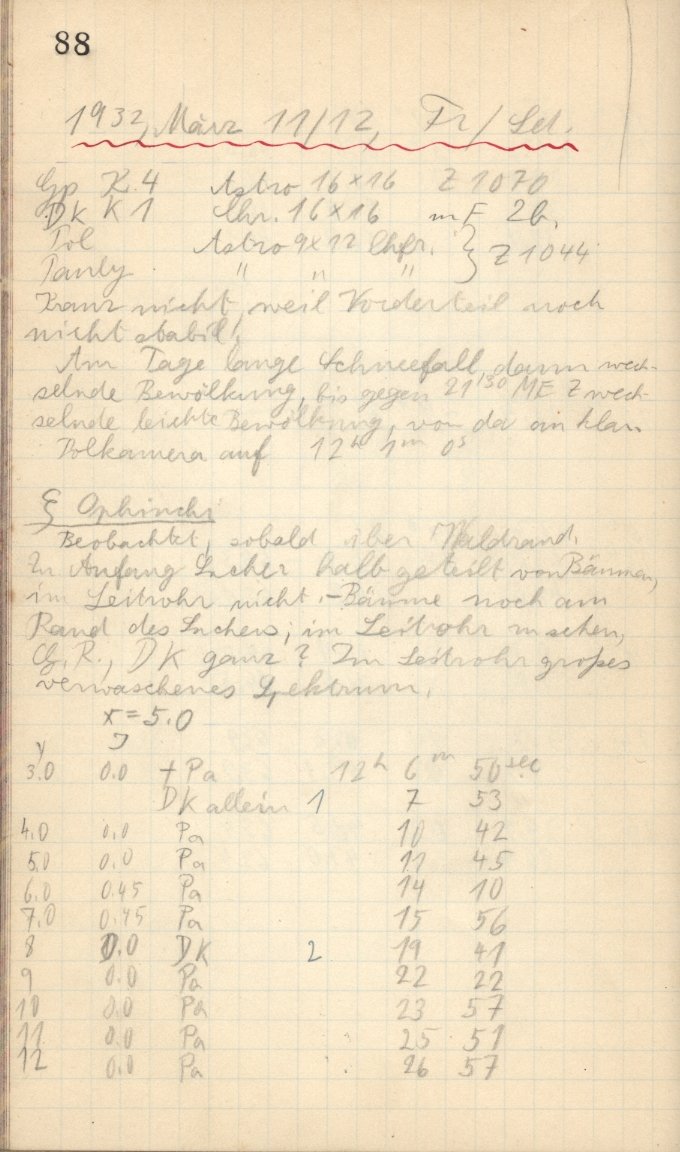 88
1932, März 11/12, Fr/Sa.
Gp K. 4 Astro 16×16 Z 1070
DK K 1 Chr. 16×16 m F 2b.
Pol Astro 9×12 Chfr. } Z 1044
Pauly " " "
Kranz nicht, weil Vorderteil noch
nicht stabil!
Am Tage lange Schneefall, dann wech-
selnde Bewölkung, bis gegen 21h30 ME Z wech-
selnde leichte Bewölkung, von da an klar
Polkamera auf 12h 1m 0s
ξ Ophiuchi
Beobachtet, sobald über Waldrand.
Zu Anfang Sucher halb geteilt von Bäumen,
im Leitrohr nicht. – Bäume noch am
Rand des Suchers; im Leitrohr zu sehen,
DK ganz? Im Leitrohr großes
verwaschenes Spektrum.
x = 5.0
y J
3.0 0.0 + Pa 12h 6m 50sec
DK allein 1 7 53
4.0 0.0 Pa 10 42
5.0 0.0 Pa 11 45
6.0 0.45 Pa 14 10
7.0 0.45 Pa 15 56
8 0.0 DK 2 19 41
9 0.0 Pa 22 22
10 0.0 Pa 23 57
11 0.0 Pa 25 51
12 0.0 Pa 26 57